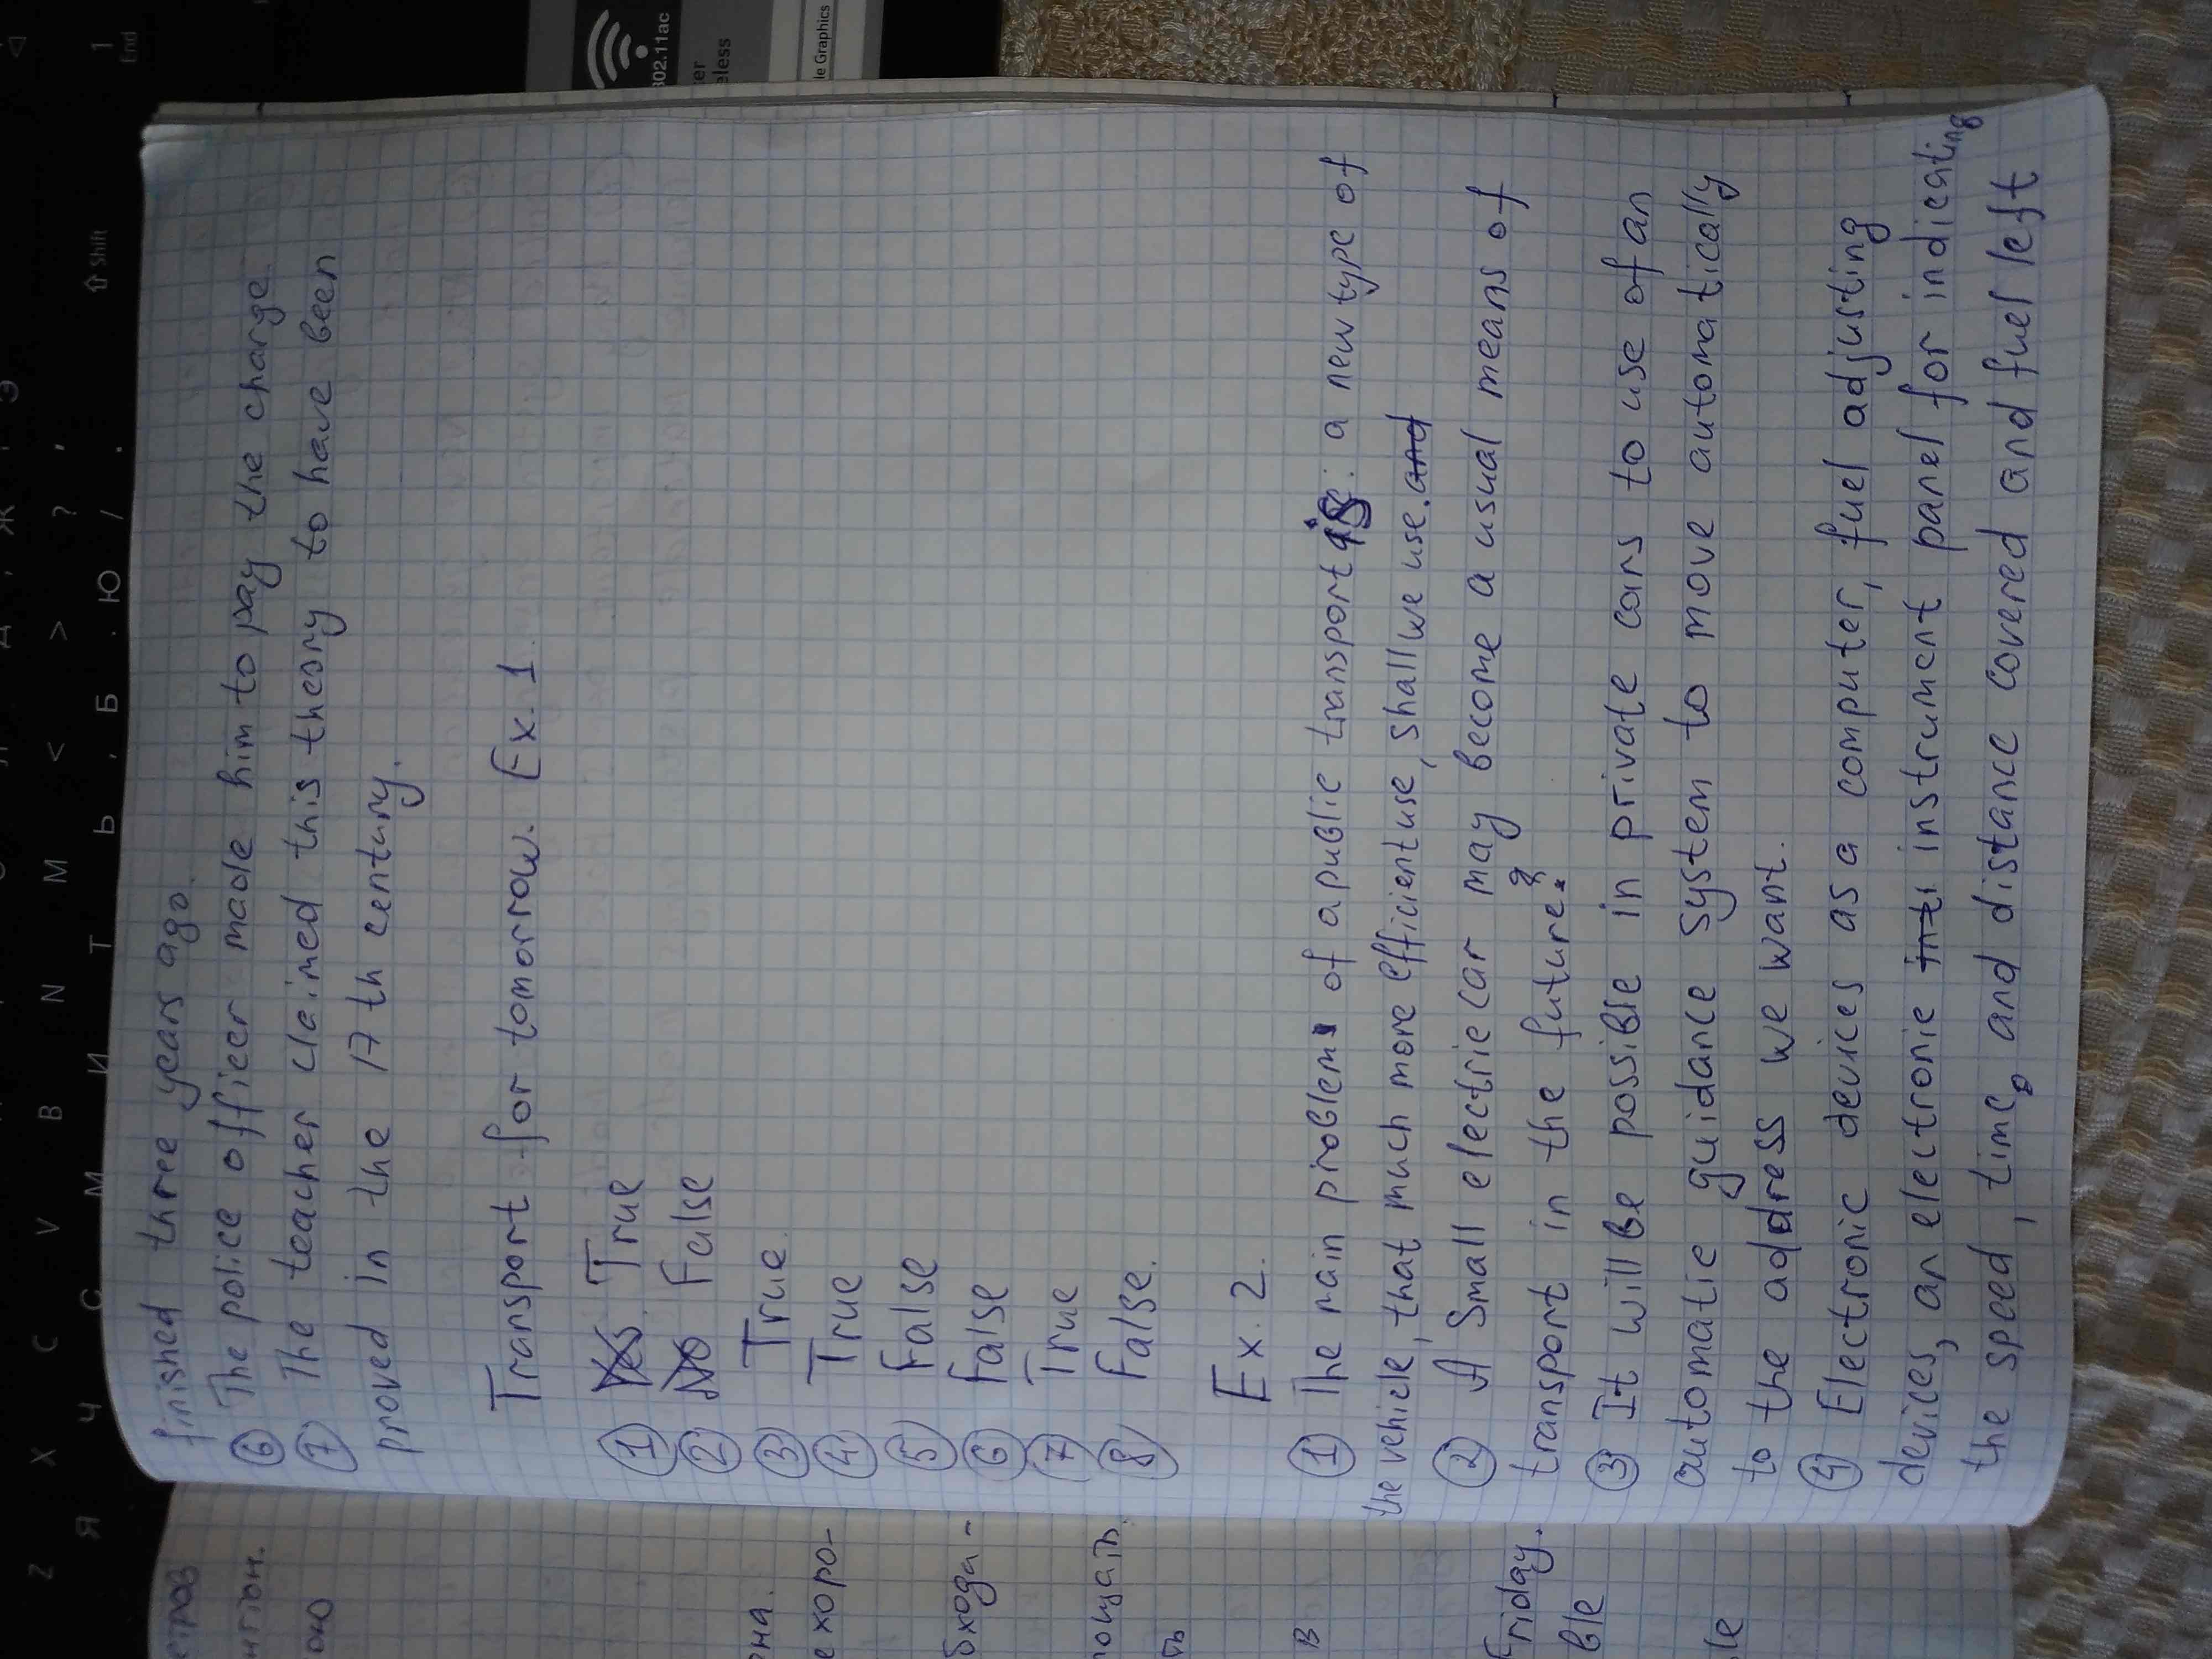 finished three years ago.
⑥ The police officer made him to pay the charge
⑦ The teacher claimed this theory to have been
proved in the 17th century.
Transport for tomorrow. Ex. 1
① Yes. True
② No False
③ True.
④ True
⑤ False
⑥ False
⑦ True
⑧ False.
Ex. 2.
① The main problem of a public transport is: a new type of
the vehicle, that much more efficient use, shall we use. and
② A small electric car may become a usual means of
transport in the future.
③ It will be possible in private cars to use of an
automatic guidance system to move automatically
to the address we want.
④ Electronic devices as a computer, fuel adjusting
devices, an electronic instrument panel for indicating
the speed, time, and distance covered and fuel left
стров
нгтон.
ою
она.
е хоро-
бхода-
ть
в
Friday.
ble
le
802.11ac
er
eless
le Graphics
End
1
⇧ Shift
Z X C V B N M < > ?
Я Ч С М И Т Ь , Б . Ю / .